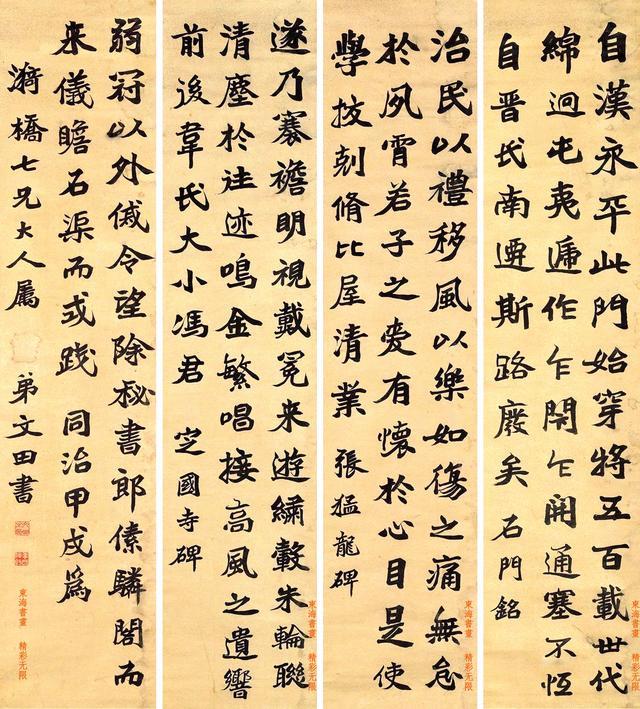 自漢永平此門始穿將五百載世代
綿迥屯夷遞作乍閉乍開通塞不恆
自晋氏南遷斯路廢矣 石門銘
東海書畫 精彩无限
治民以禮移風以樂如傷之痛無怠
於夙宵若子之愛有懷於心目是使
學校剋脩比屋清業 張猛龍碑
東海書畫 精彩无限
遂乃褰襜明視戴冕来遊繡轂朱輪聯
清塵於往迹鳴金繁唱接高風之遺響
前後韋氏大小馮君 定國寺碑
東海書畫 精彩无限
弱冠以外俄令望除秘書郎傃驎閣而
来儀瞻石渠而或踐 同治甲戌爲
漪橋七兄大人屬 弟文田書
東海書畫 精彩无限